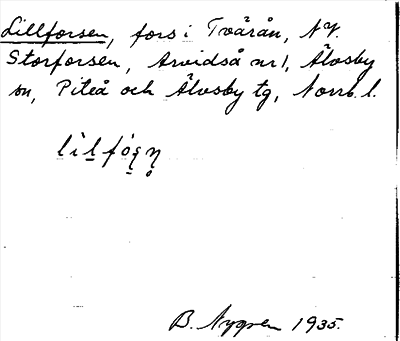 Lillforsen, fors i Tvärån, N.V.
Storforsen, Arvidså nr 1, Älvsby
sn, Piteå och Älvsby tg, Norrb. l.
lìlfó̱ṣṇ̥
B. Nygren 1935.